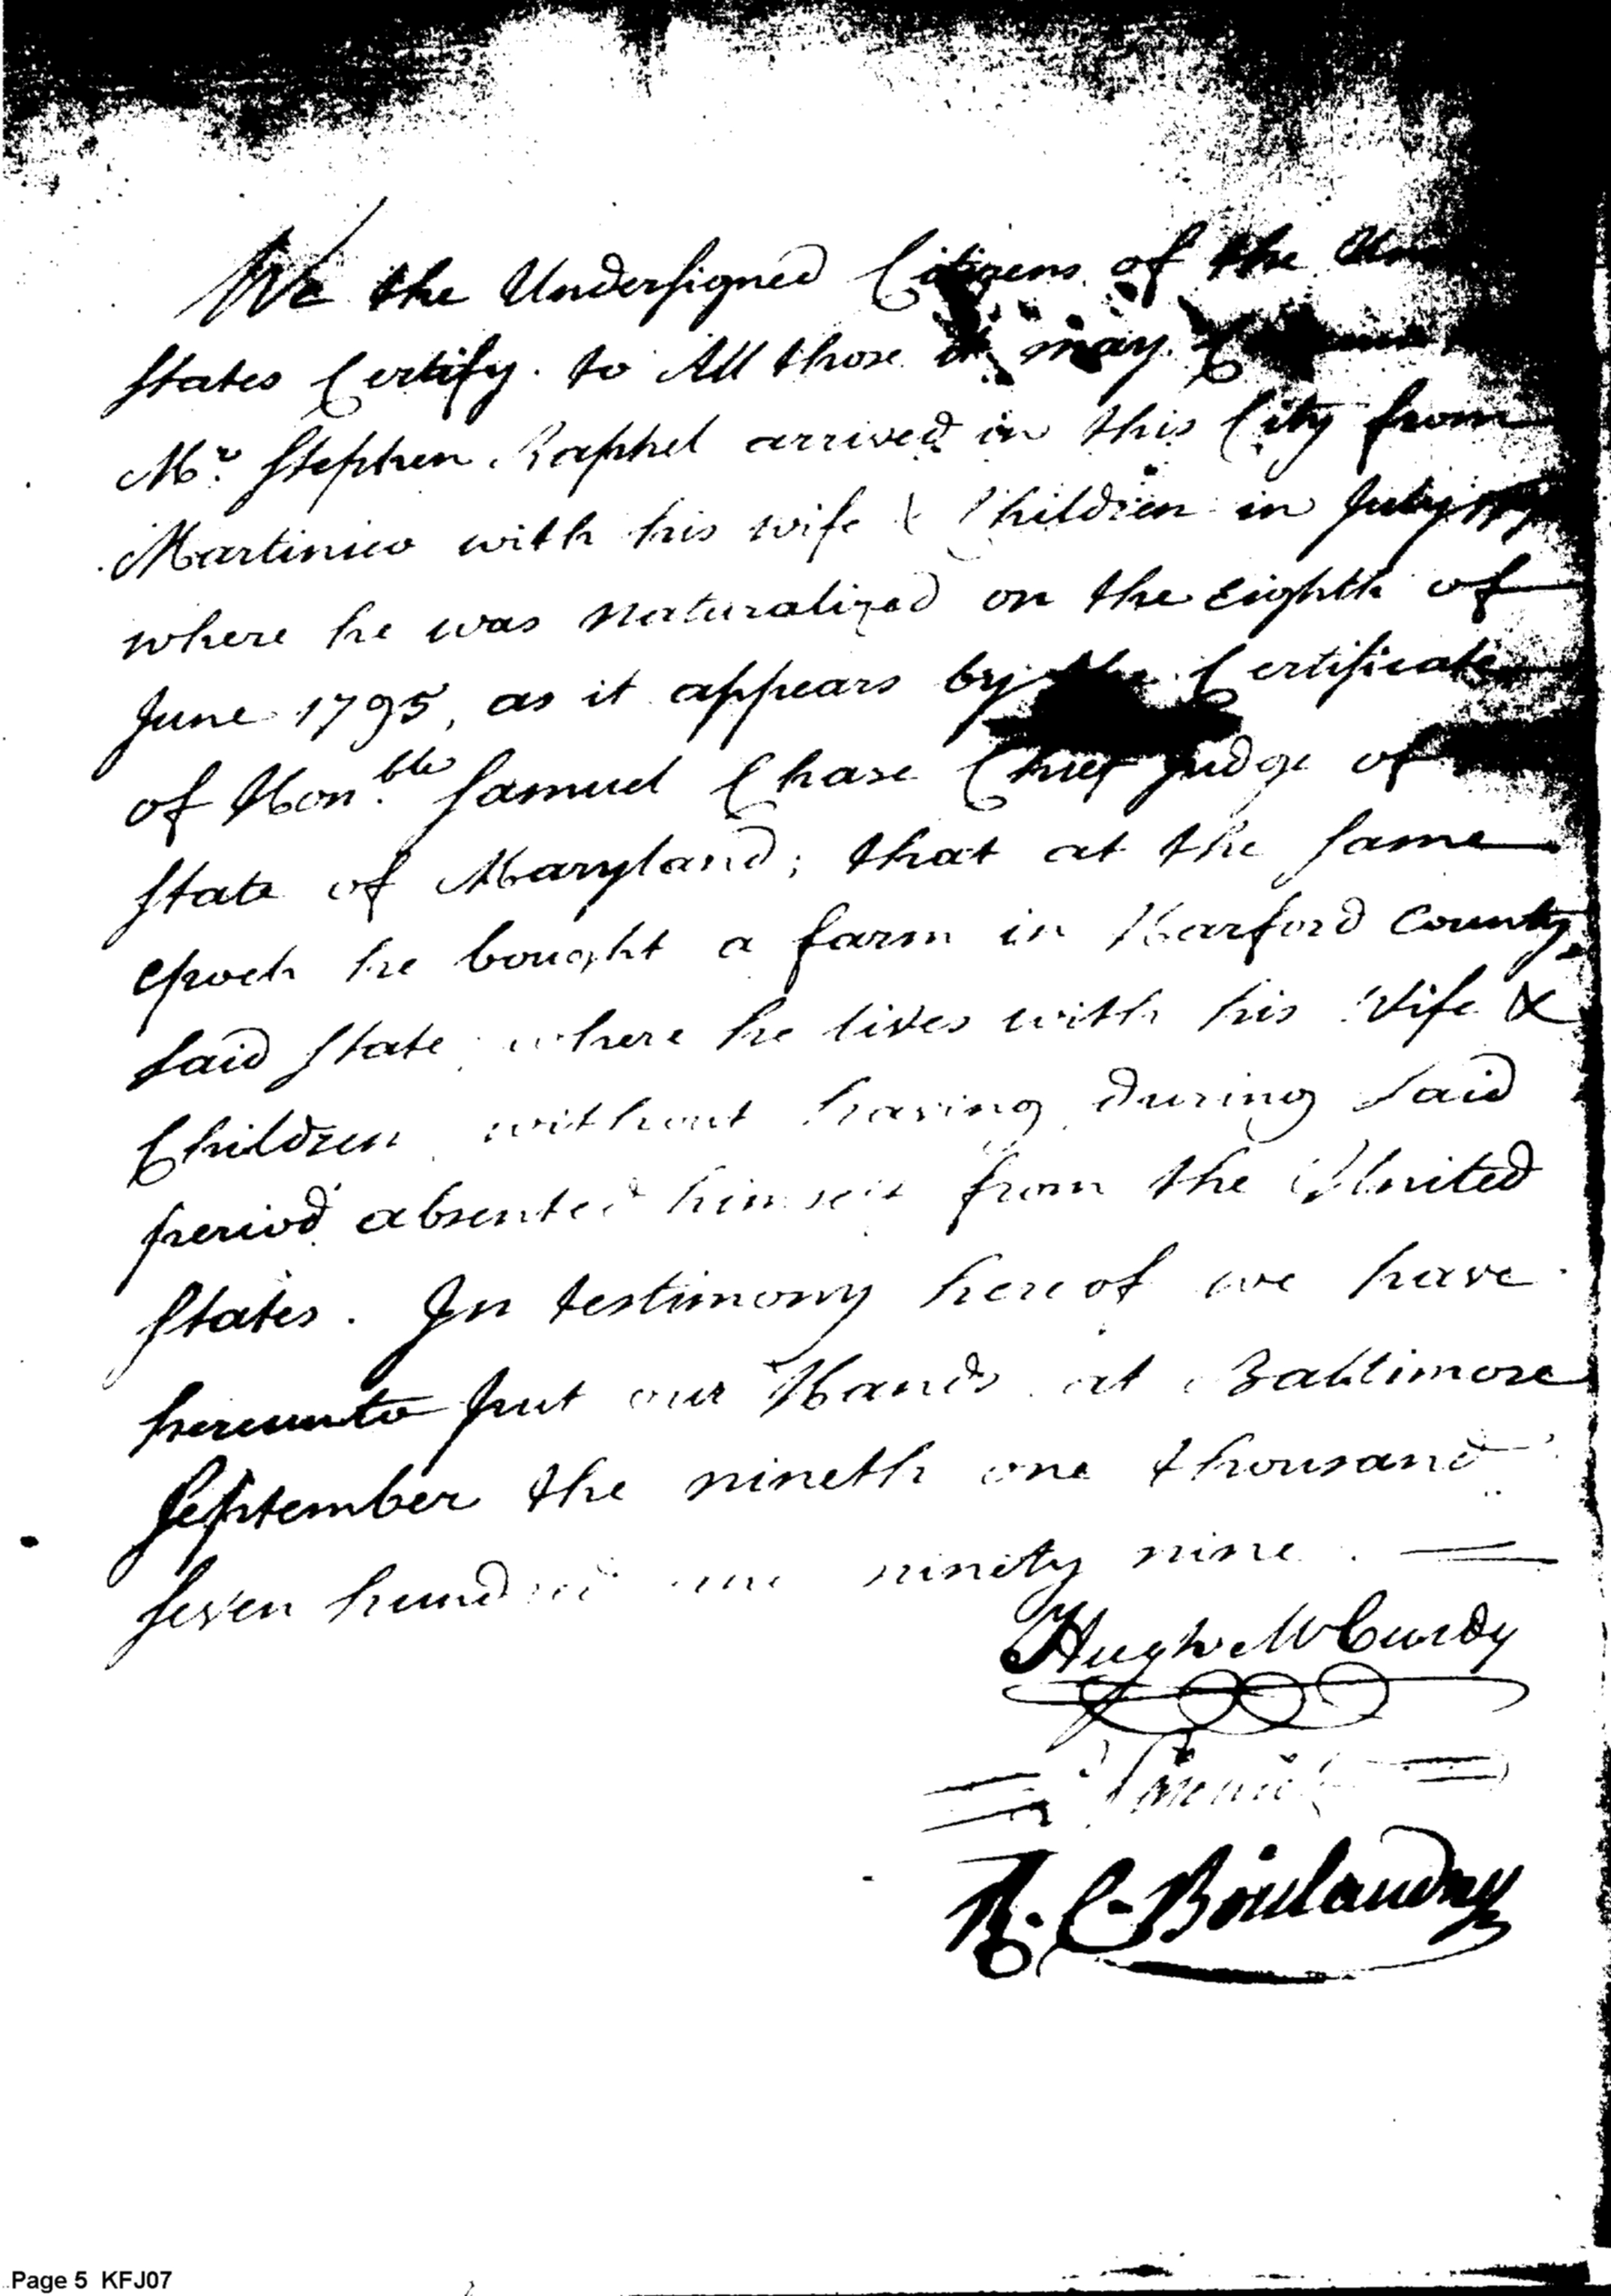 We the Undersigned Citizens of the
States Certify to All those it may
Mr. Stephen Raphel arrived in this City from
Martinico with his wife & Children in July
where he was naturalized on the Eighth of
June 1795, as it appears by the Certificate
of Hon.ble Samuel Chase Chief Judge of
State of Maryland; that at the same
epoch he bought a farm in Harford County
said State where he lives with his Wife &
Children without having during said
period absented himself from the United
States. In testimony hereof we have
hereunto put our Hands at Baltimore
September the nineth one thousand
seven hundred ninety nine.
Hugh McCurdy
R. C. Boislandry
Page 5 KFJ07